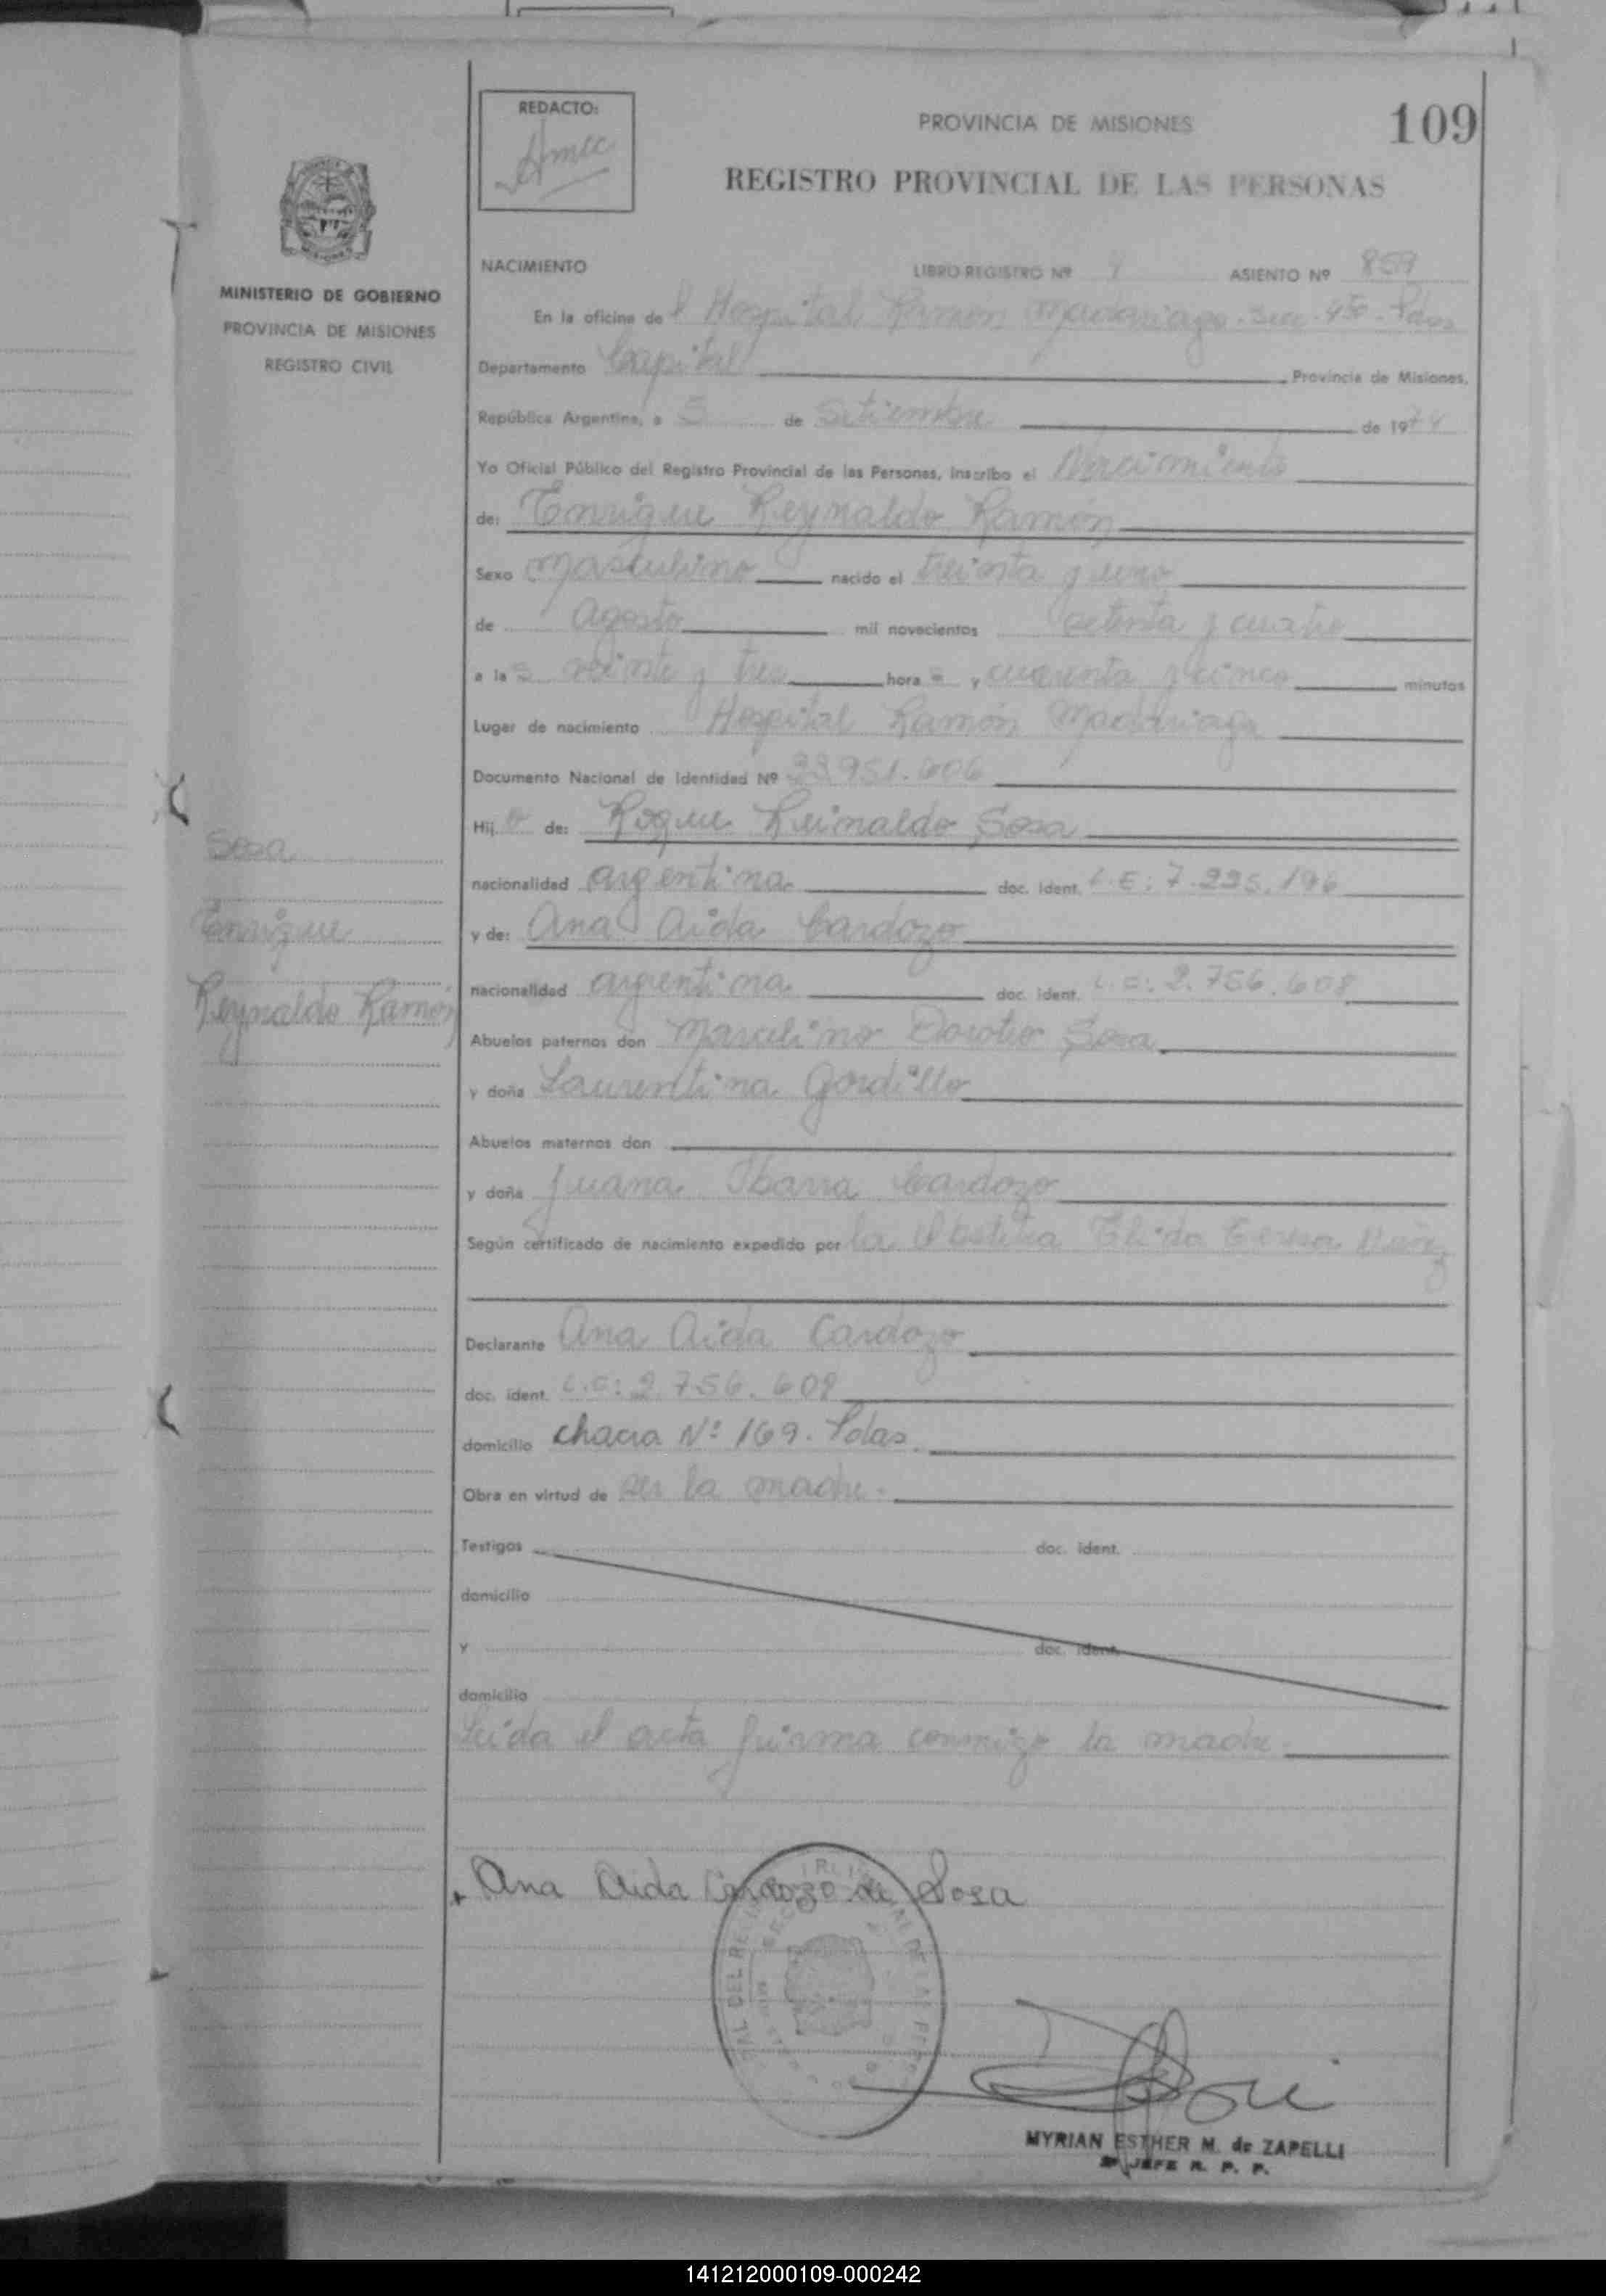 REDACTO:
PROVINCIA DE MISIONES
109
REGISTRO PROVINCIAL DE LAS PERSONAS
MINISTERIO DE GOBIERNO
PROVINCIA DE MISIONES
REGISTRO CIVIL
NACIMIENTO LIBRO REGISTRO Nº ASIENTO Nº 859
En la oficina de l Hospital Ramón Madariaga
Departamento Capital Provincia de Misiones,
República Argentina, a 5 de Setiembre de 1974
Yo Oficial Público del Registro Provincial de las Personas, inscribo el Nacimiento
de: Enrique Reynaldo Ramón
Sexo masculino nacido el treinta y uno
de Agosto mil novecientos setenta y cuatro
a la s veinte y tres hora s y cuarenta y cinco minutos
Lugar de nacimiento Hospital Ramón Madariaga
Documento Nacional de Identidad Nº 23951.606
Hij o de: Roque Reimaldo Sosa
Sosa
nacionalidad argentina doc. ident. L.E: 7.225.196
Enrique
y de: Ana Aida Cardozo
Reynaldo Ramón
nacionalidad argentina doc. ident. L.C: 2.756.608
Abuelos paternos don Marcelino Doroteo Sosa
y doña Laurentina Gordillo
Abuelos maternos don
y doña Juana Ibarra Cardozo
Según certificado de nacimiento expedido por la Obstetra Elida Teresa
Declarante Ana Aida Cardozo
doc. ident. L.C: 2.756.608
domicilio chacra Nº 169. Pdas
Obra en virtud de ser la madre.
Testigos doc. ident.
domicilio
y doc. ident.
domicilio
Leida el acta firma conmigo la madre.
Ana Aida Cardozo de Sosa
MYRIAN ESTHER M. de ZAPELLI
JEFE R. P. P.
141212000109-000242